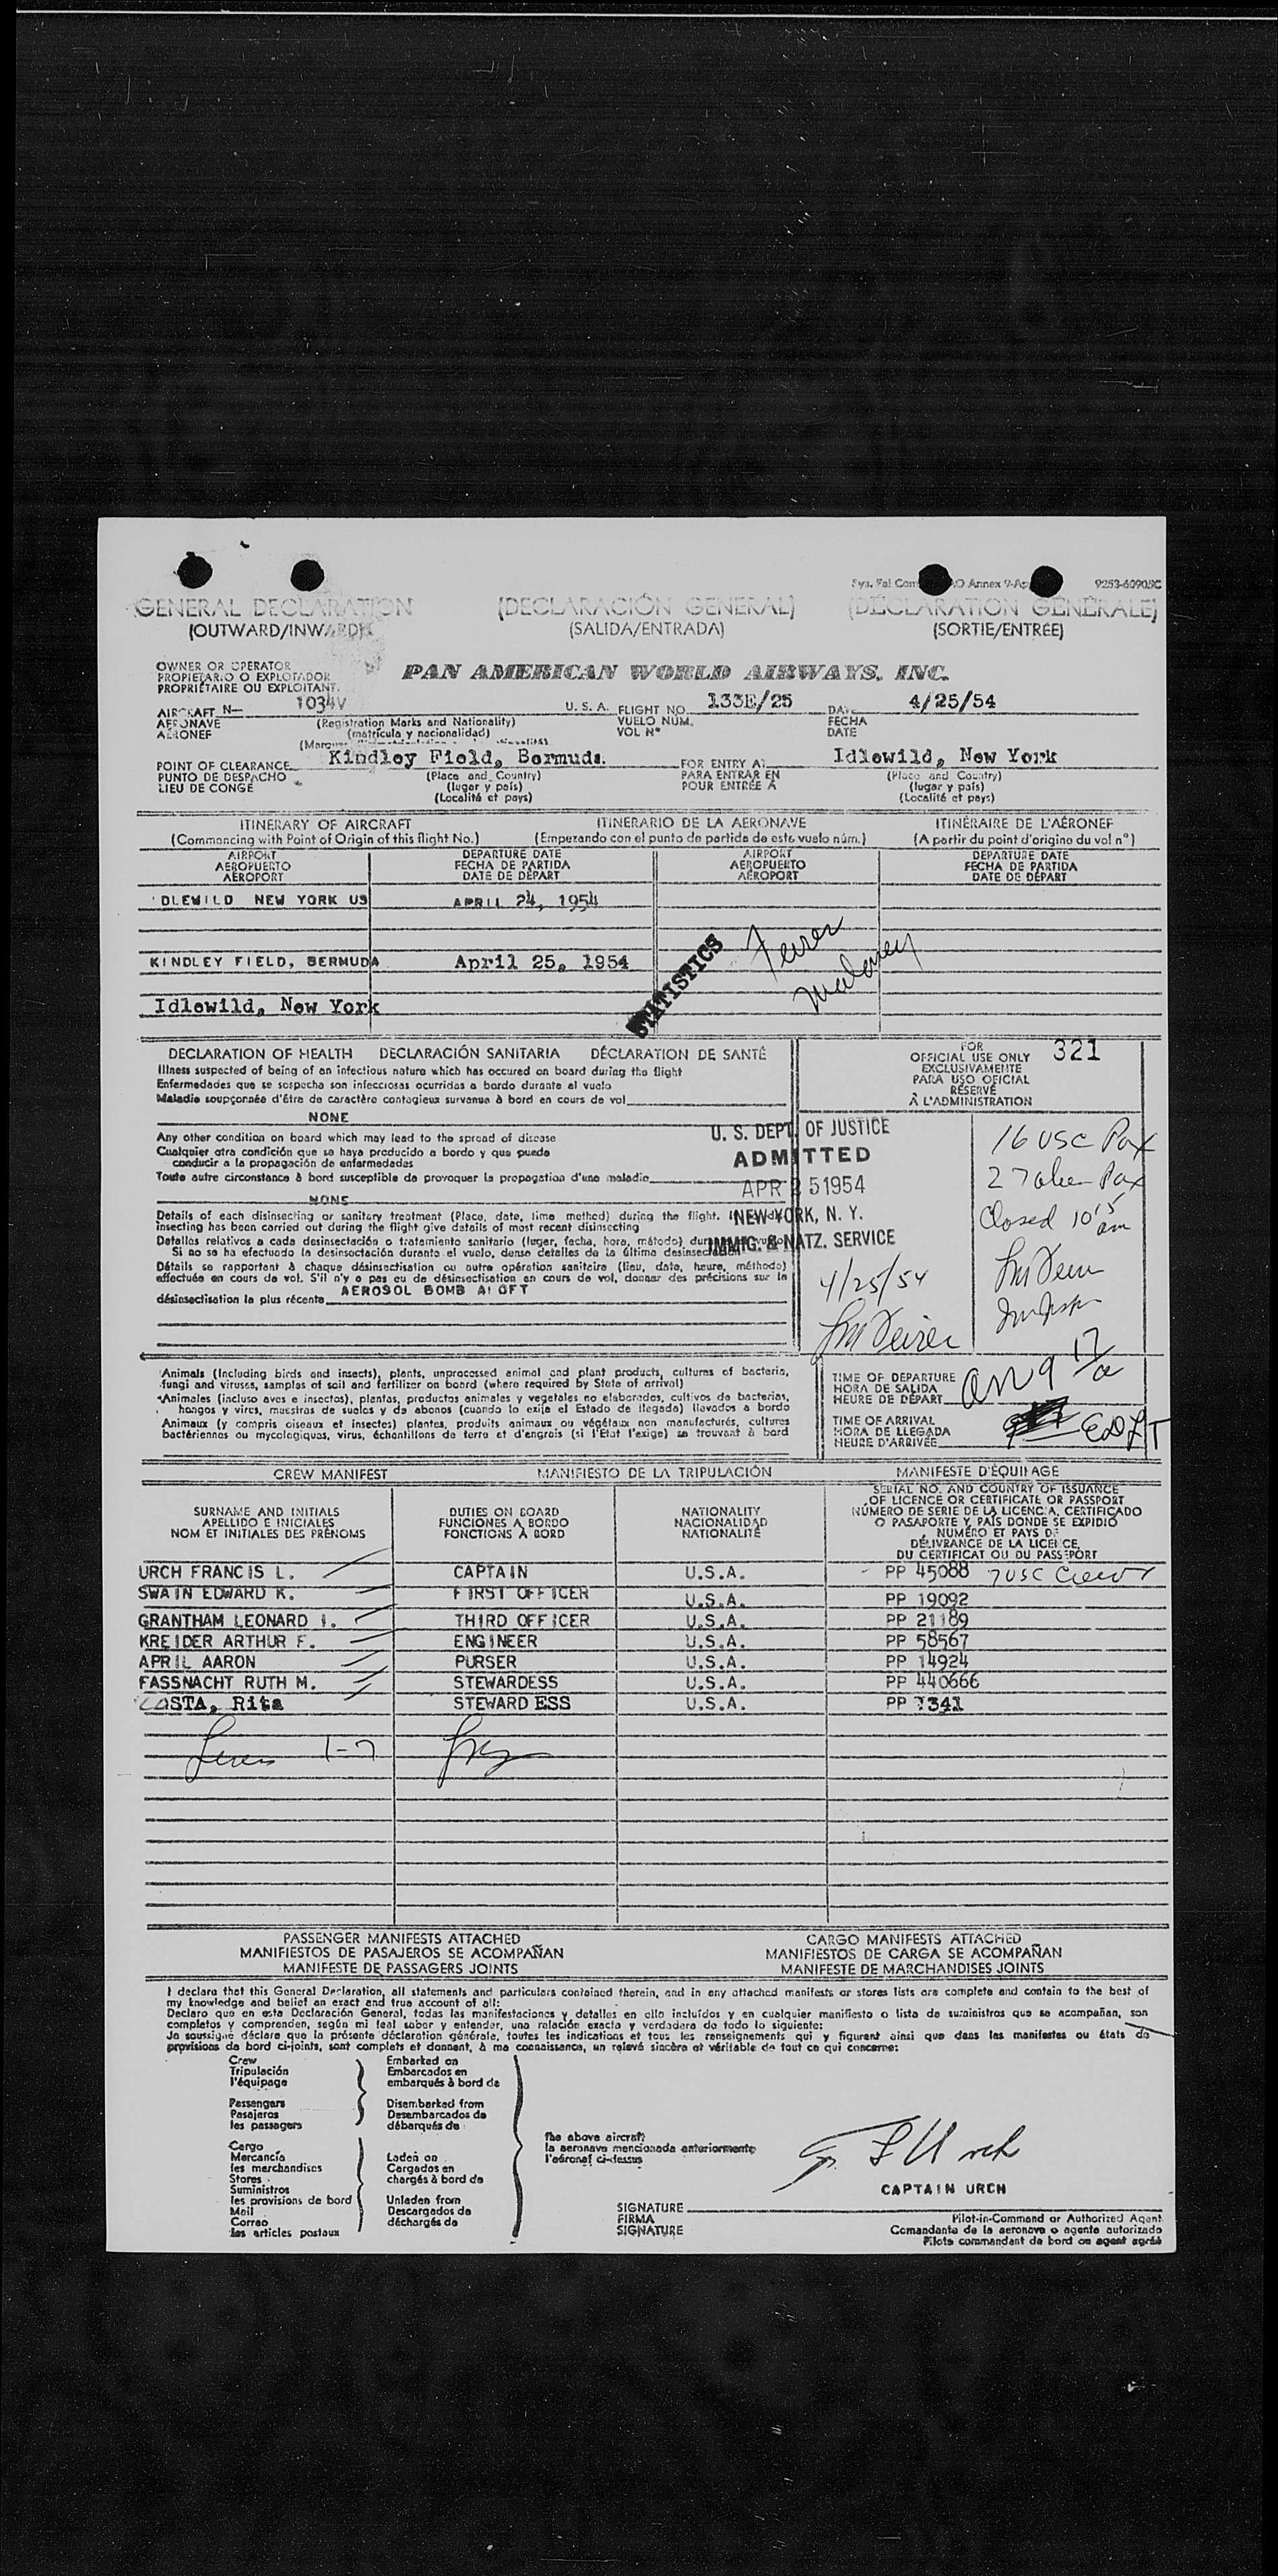 Annex 9-Ap
9253-60905C
GENERAL DECLARATION (DECLARACIÓN GENERAL) (DÉCLARATION GÉNÉRALE)
(OUTWARD/INWARD) (SALIDA/ENTRADA) (SORTIE/ENTRÉE)
OWNER OR OPERATOR
PROPIETARIO O EXPLOTADOR
PROPRIÉTAIRE OU EXPLOITANT
PAN AMERICAN WORLD AIRWAYS, INC.
AIRCRAFT N— 1034V U. S. A. FLIGHT NO. 133E/25 DATE 4/25/54
AERONAVE (Registration Marks and Nationality) VUELO NÚM. FECHA
AÉRONEF (matrícula y nacionalidad) VOL Nº DATE
POINT OF CLEARANCE Kindley Field, Bermuda. FOR ENTRY AT Idlewild, New York
PUNTO DE DESPACHO (Place and Country) PARA ENTRAR EN (Place and Country)
LIEU DE CONGÉ (lugar y país) POUR ENTRÉE À (lugar y país)
(Localité et pays) (Localité et pays)
ITINERARY OF AIRCRAFT ITINERARIO DE LA AERONAVE ITINÉRAIRE DE L'AÉRONEF
(Commencing with Point of Origin of this flight No.) (Empezando con el punto de partida de este vuelo núm.) (A partir du point d'origine du vol nº)
AIRPORT DEPARTURE DATE AIRPORT DEPARTURE DATE
AEROPUERTO FECHA DE PARTIDA AEROPUERTO FECHA DE PARTIDA
AÉROPORT DATE DE DÉPART AÉROPORT DATE DE DÉPART
DLEWILD NEW YORK US APRIL 24, 1954
KINDLEY FIELD, BERMUDA April 25, 1954
Idlewild, New York
STATISTICS
Maloney
DECLARATION OF HEALTH DECLARACIÓN SANITARIA DÉCLARATION DE SANTÉ
Illness suspected of being of an infectious nature which has occured on board during the flight
Enfermedades que se sospecha son infecciosas ocurridas a bordo durante el vuelo
Maladie soupçonnée d'être de caractère contagieux survenue à bord en cours de vol
NONE
Any other condition on board which may lead to the spread of disease
Cualquier otra condición que se haya producido a bordo y que puede
conducir a la propagación de enfermedades
Toute autre circonstance à bord susceptible de provoquer la propagation d'une maladie
NONE
Details of each disinsecting or sanitary treatment (Place, date, time method) during the flight.
insecting has been carried out during the flight give details of most recent disinsecting
Detalles relativos a cada desinsectación o tratamiento sanitario (lugar, fecha, hora, método)
Si no se ha efectuado la desinsectación durante el vuelo, dense detalles de la última desinsectación
Détails se rapportant à chaque désinsectisation ou autre opération sanitaire (lieu, date, heure, méthode)
effectuée en cours de vol. S'il n'y a pas eu de désinsectisation en cours de vol, donner des précisions sur la
désinsectisation la plus récente AEROSOL BOMB ALOFT
FOR 321
OFFICIAL USE ONLY
EXCLUSIVAMENTE
PARA USO OFICIAL
RÉSERVÉ
À L'ADMINISTRATION
U. S. DEPT. OF JUSTICE
ADMITTED
APR 25 1954
NEW YORK, N. Y.
IMMIG. & NATZ. SERVICE
4/25/54
16 USC Pax
27 alien Pax
Closed 10 15 am
Animals (Including birds and insects), plants, unprocessed animal and plant products, cultures of bacteria,
fungi and viruses, samples of soil and fertilizer on board (where required by State of arrival)
Animales (incluso aves e insectos), plantas, productos animales y vegetales no elaborados, cultivos de bacterias,
hongos y virus, muestras de suelos y de abonos (cuando lo exija el Estado de llegada) llevados a bordo
Animaux (y compris oiseaux et insectes) plantes, produits animaux ou végétaux non manufacturés, cultures
bactériennes ou mycologiques, virus, échantillons de terre et d'engrais (si l'Etat l'exige) se trouvant à bord
TIME OF DEPARTURE
HORA DE SALIDA
HEURE DE DÉPART
TIME OF ARRIVAL
HORA DE LLEGADA
HEURE D'ARRIVÉE
CREW MANIFEST MANIFIESTO DE LA TRIPULACIÓN MANIFESTE D'ÉQUIPAGE
SURNAME AND INITIALS
APELLIDO E INICIALES
NOM ET INITIALES DES PRÉNOMS
DUTIES ON BOARD
FUNCIONES A BORDO
FONCTIONS À BORD
NATIONALITY
NACIONALIDAD
NATIONALITÉ
SERIAL NO. AND COUNTRY OF ISSUANCE
OF LICENCE OR CERTIFICATE OR PASSPORT
NÚMERO DE SERIE DE LA LICENCIA, CERTIFICADO
O PASAPORTE Y PAÍS DONDE SE EXPIDIÓ
NUMÉRO ET PAYS DE
DÉLIVRANCE DE LA LICENCE,
DU CERTIFICAT OU DU PASSEPORT
URCH FRANCIS L. CAPTAIN U.S.A. PP 45088 7 USC Crew
SWAIN EDWARD K. FIRST OFFICER U.S.A. PP 19092
GRANTHAM LEONARD I. THIRD OFFICER U.S.A. PP 21189
KREIDER ARTHUR F. ENGINEER U.S.A. PP 58567
APRIL AARON PURSER U.S.A. PP 14924
FASSNACHT RUTH M. STEWARDESS U.S.A. PP 440666
COSTA, Rita STEWARD ESS U.S.A. PP 341
1-7
PASSENGER MANIFESTS ATTACHED CARGO MANIFESTS ATTACHED
MANIFIESTOS DE PASAJEROS SE ACOMPAÑAN MANIFIESTOS DE CARGA SE ACOMPAÑAN
MANIFESTE DE PASSAGERS JOINTS MANIFESTE DE MARCHANDISES JOINTS
I declare that this General Declaration, all statements and particulars contained therein, and in any attached manifests or stores lists are complete and contain to the best of
my knowledge and belief an exact and true account of all:
Declaro que en esta Declaración General, todas las manifestaciones y detalles en ella incluídos y en cualquier manifiesto o lista de suministros que se acompañan, son
completos y comprenden, según mi leal saber y entender, una relación exacta y verdadera de todo lo siguiente:
Je soussigné déclare que la présente déclaration générale, toutes les indications et tous les renseignements qui y figurent ainsi que dans les manifestes ou états de
provisions de bord ci-joints, sont complets et donnent, à ma connaissance, un relevé sincère et véritable de tout ce qui concerne:
Crew Embarked on
Tripulación Embarcados en
l'équipage embarqués à bord de
Passengers Disembarked from
Pasajeros Desembarcados de
les passagers débarqués de
Cargo
Mercancía Laden on
les marchandises Cargados en
Stores chargés à bord de
Suministros
les provisions de bord Unladen from
Mail Descargados de
Correo déchargés de
les articles postaux
The above aircraft
la aeronave mencionada anteriormente
l'aéronef ci-dessus
F L Urch
CAPTAIN URCH
SIGNATURE Pilot-in-Command or Authorized Agent
FIRMA Comandante de la aeronave o agente autorizado
SIGNATURE Pilote commandant de bord ou agent agréé